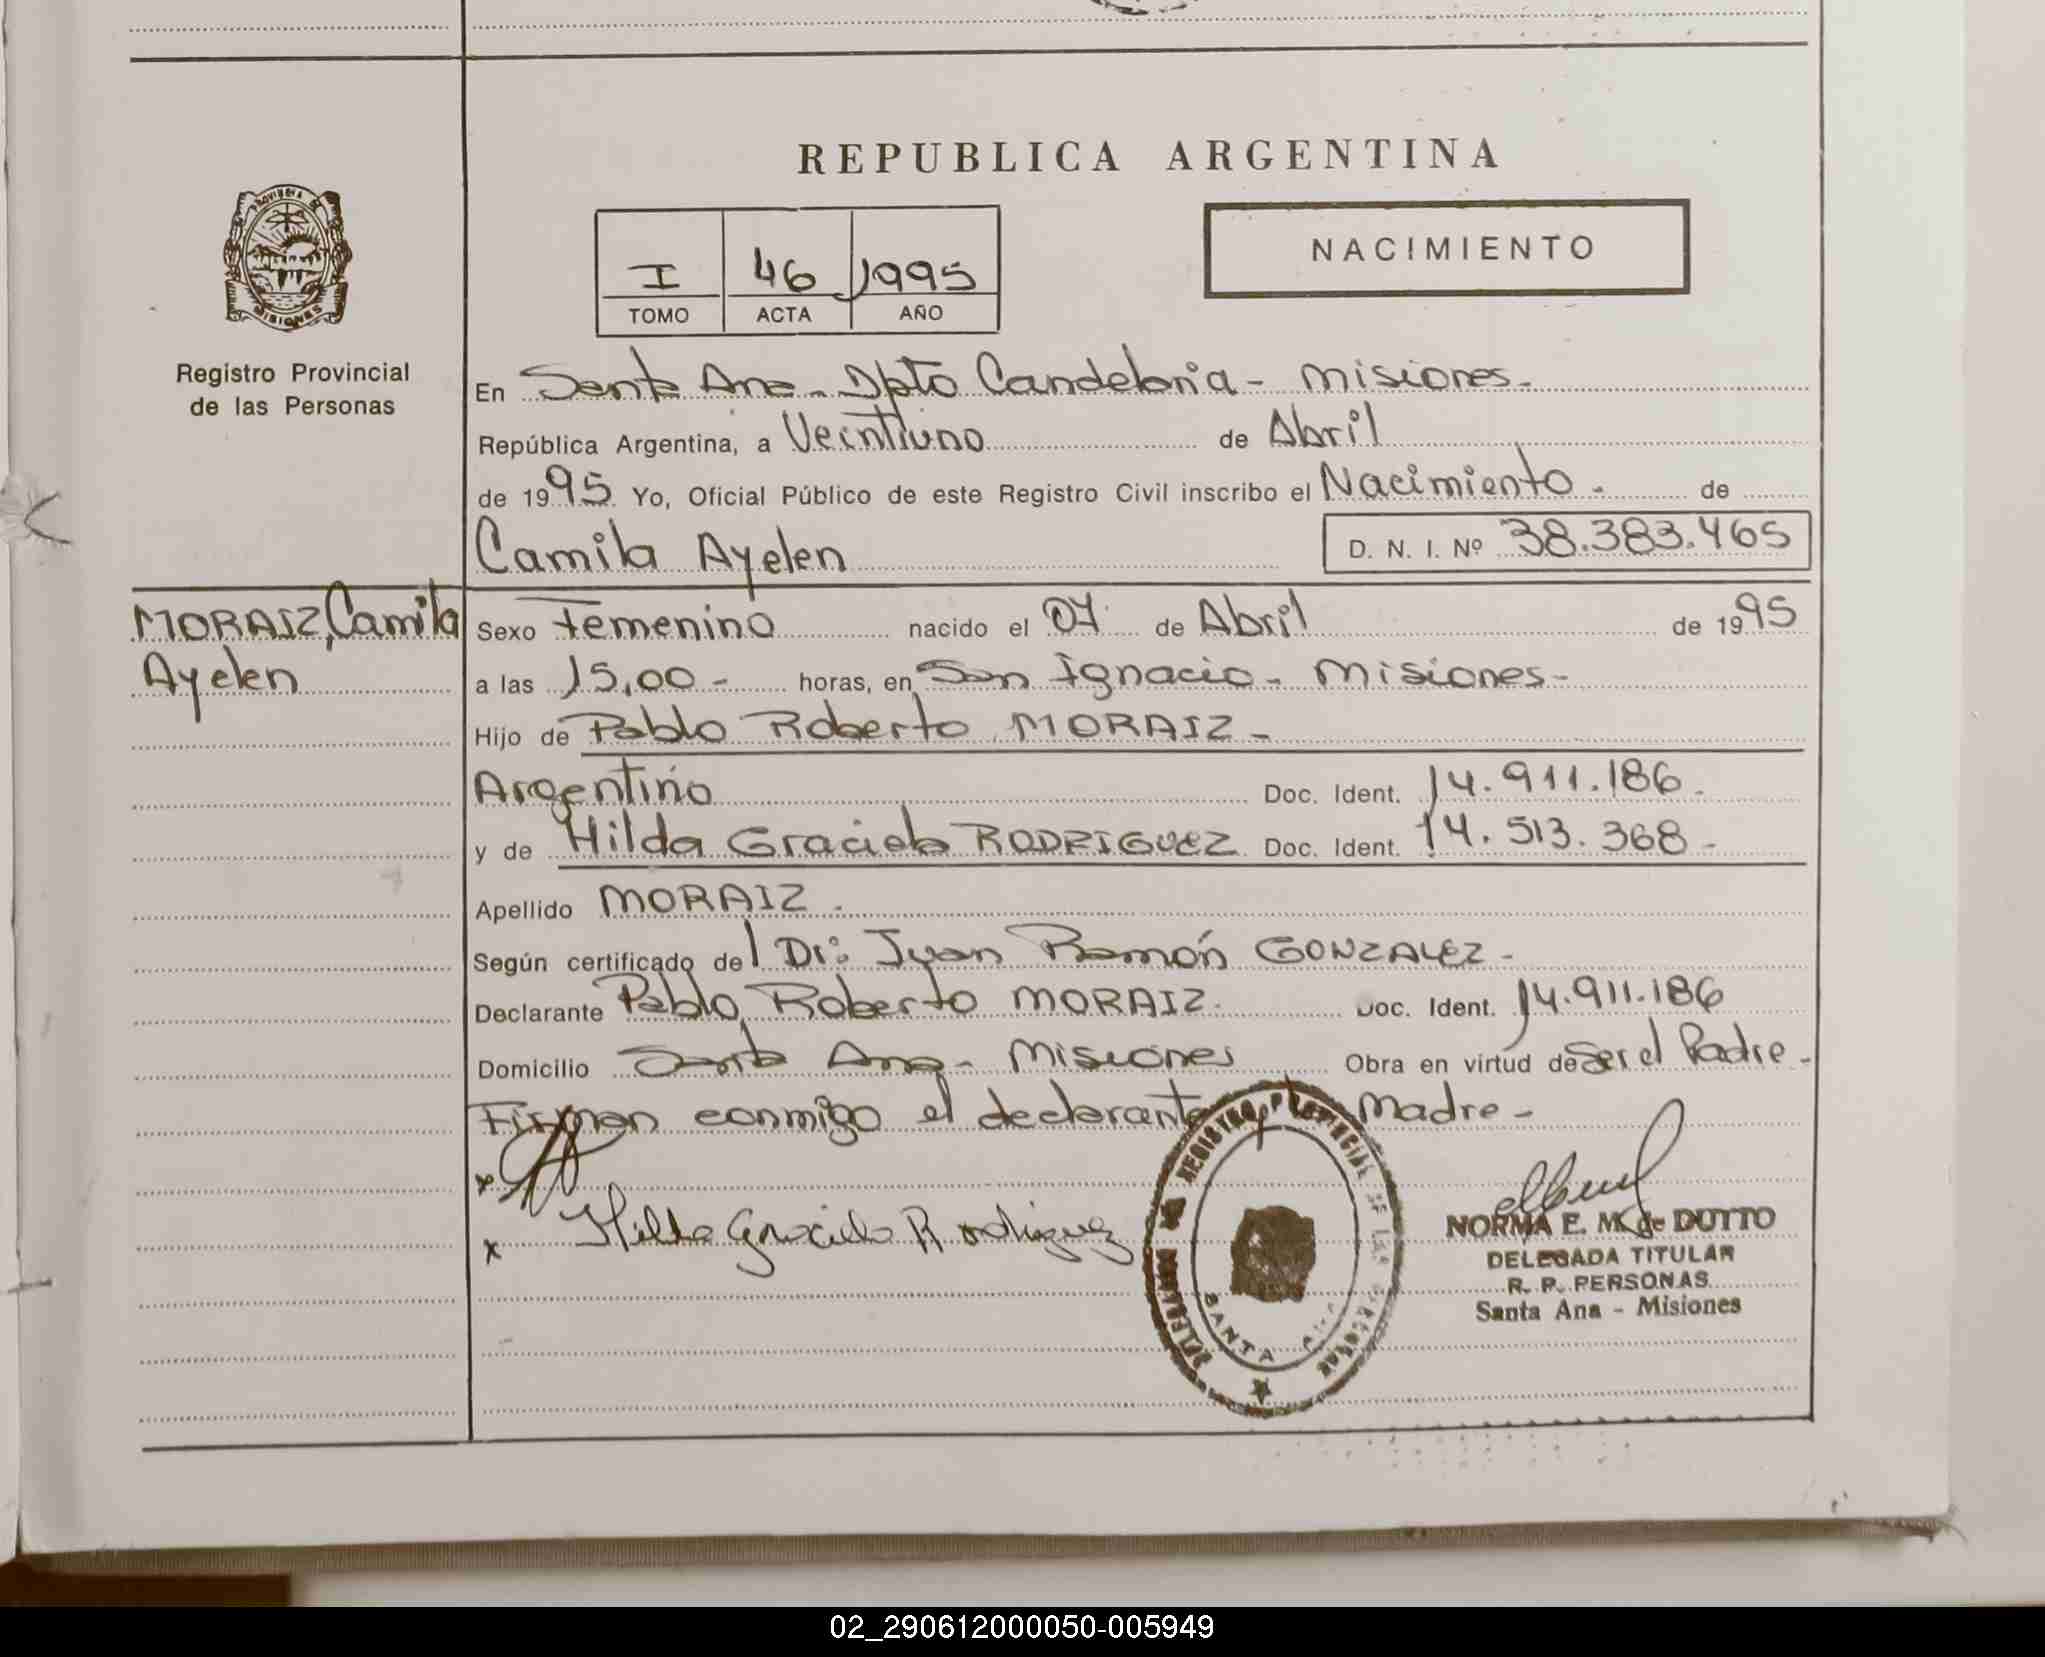 REPUBLICA ARGENTINA
PROVINCIA DE
MISIONES
Registro Provincial
de las Personas
I 46 1995
TOMO ACTA AÑO
NACIMIENTO
En Santa Ana - Dpto Candelaria - Misiones -
República Argentina, a Veintiuno de Abril
de 1995 Yo, Oficial Público de este Registro Civil inscribo el Nacimiento - de
Camila Ayelen D. N. I. Nº 38.383.465
MORAIZ, Camila
Ayelen
Sexo Femenino nacido el 07 de Abril de 1995
a las 15,00 - horas, en San Ignacio - Misiones -
Hijo de Pablo Roberto MORAIZ -
Argentino Doc. Ident. 14.911.186 -
y de Hilda Graciela RODRIGUEZ Doc. Ident. 14.513.368 -
Apellido MORAIZ -
Según certificado del Dr: Juan Ramón GONZALEZ -
Declarante Pablo Roberto MORAIZ - Doc. Ident. 14.911.186
Domicilio Santa Ana - Misiones Obra en virtud de Ser el Padre -
Firman conmigo el declarante y Madre -
x
x Hilda Graciela Rodriguez
REGISTRO PROVINCIAL DE LAS PERSONAS
SANTA ANA
NORMA E. M. de DUTTO
DELEGADA TITULAR
R. P. PERSONAS
Santa Ana - Misiones
02_290612000050-005949